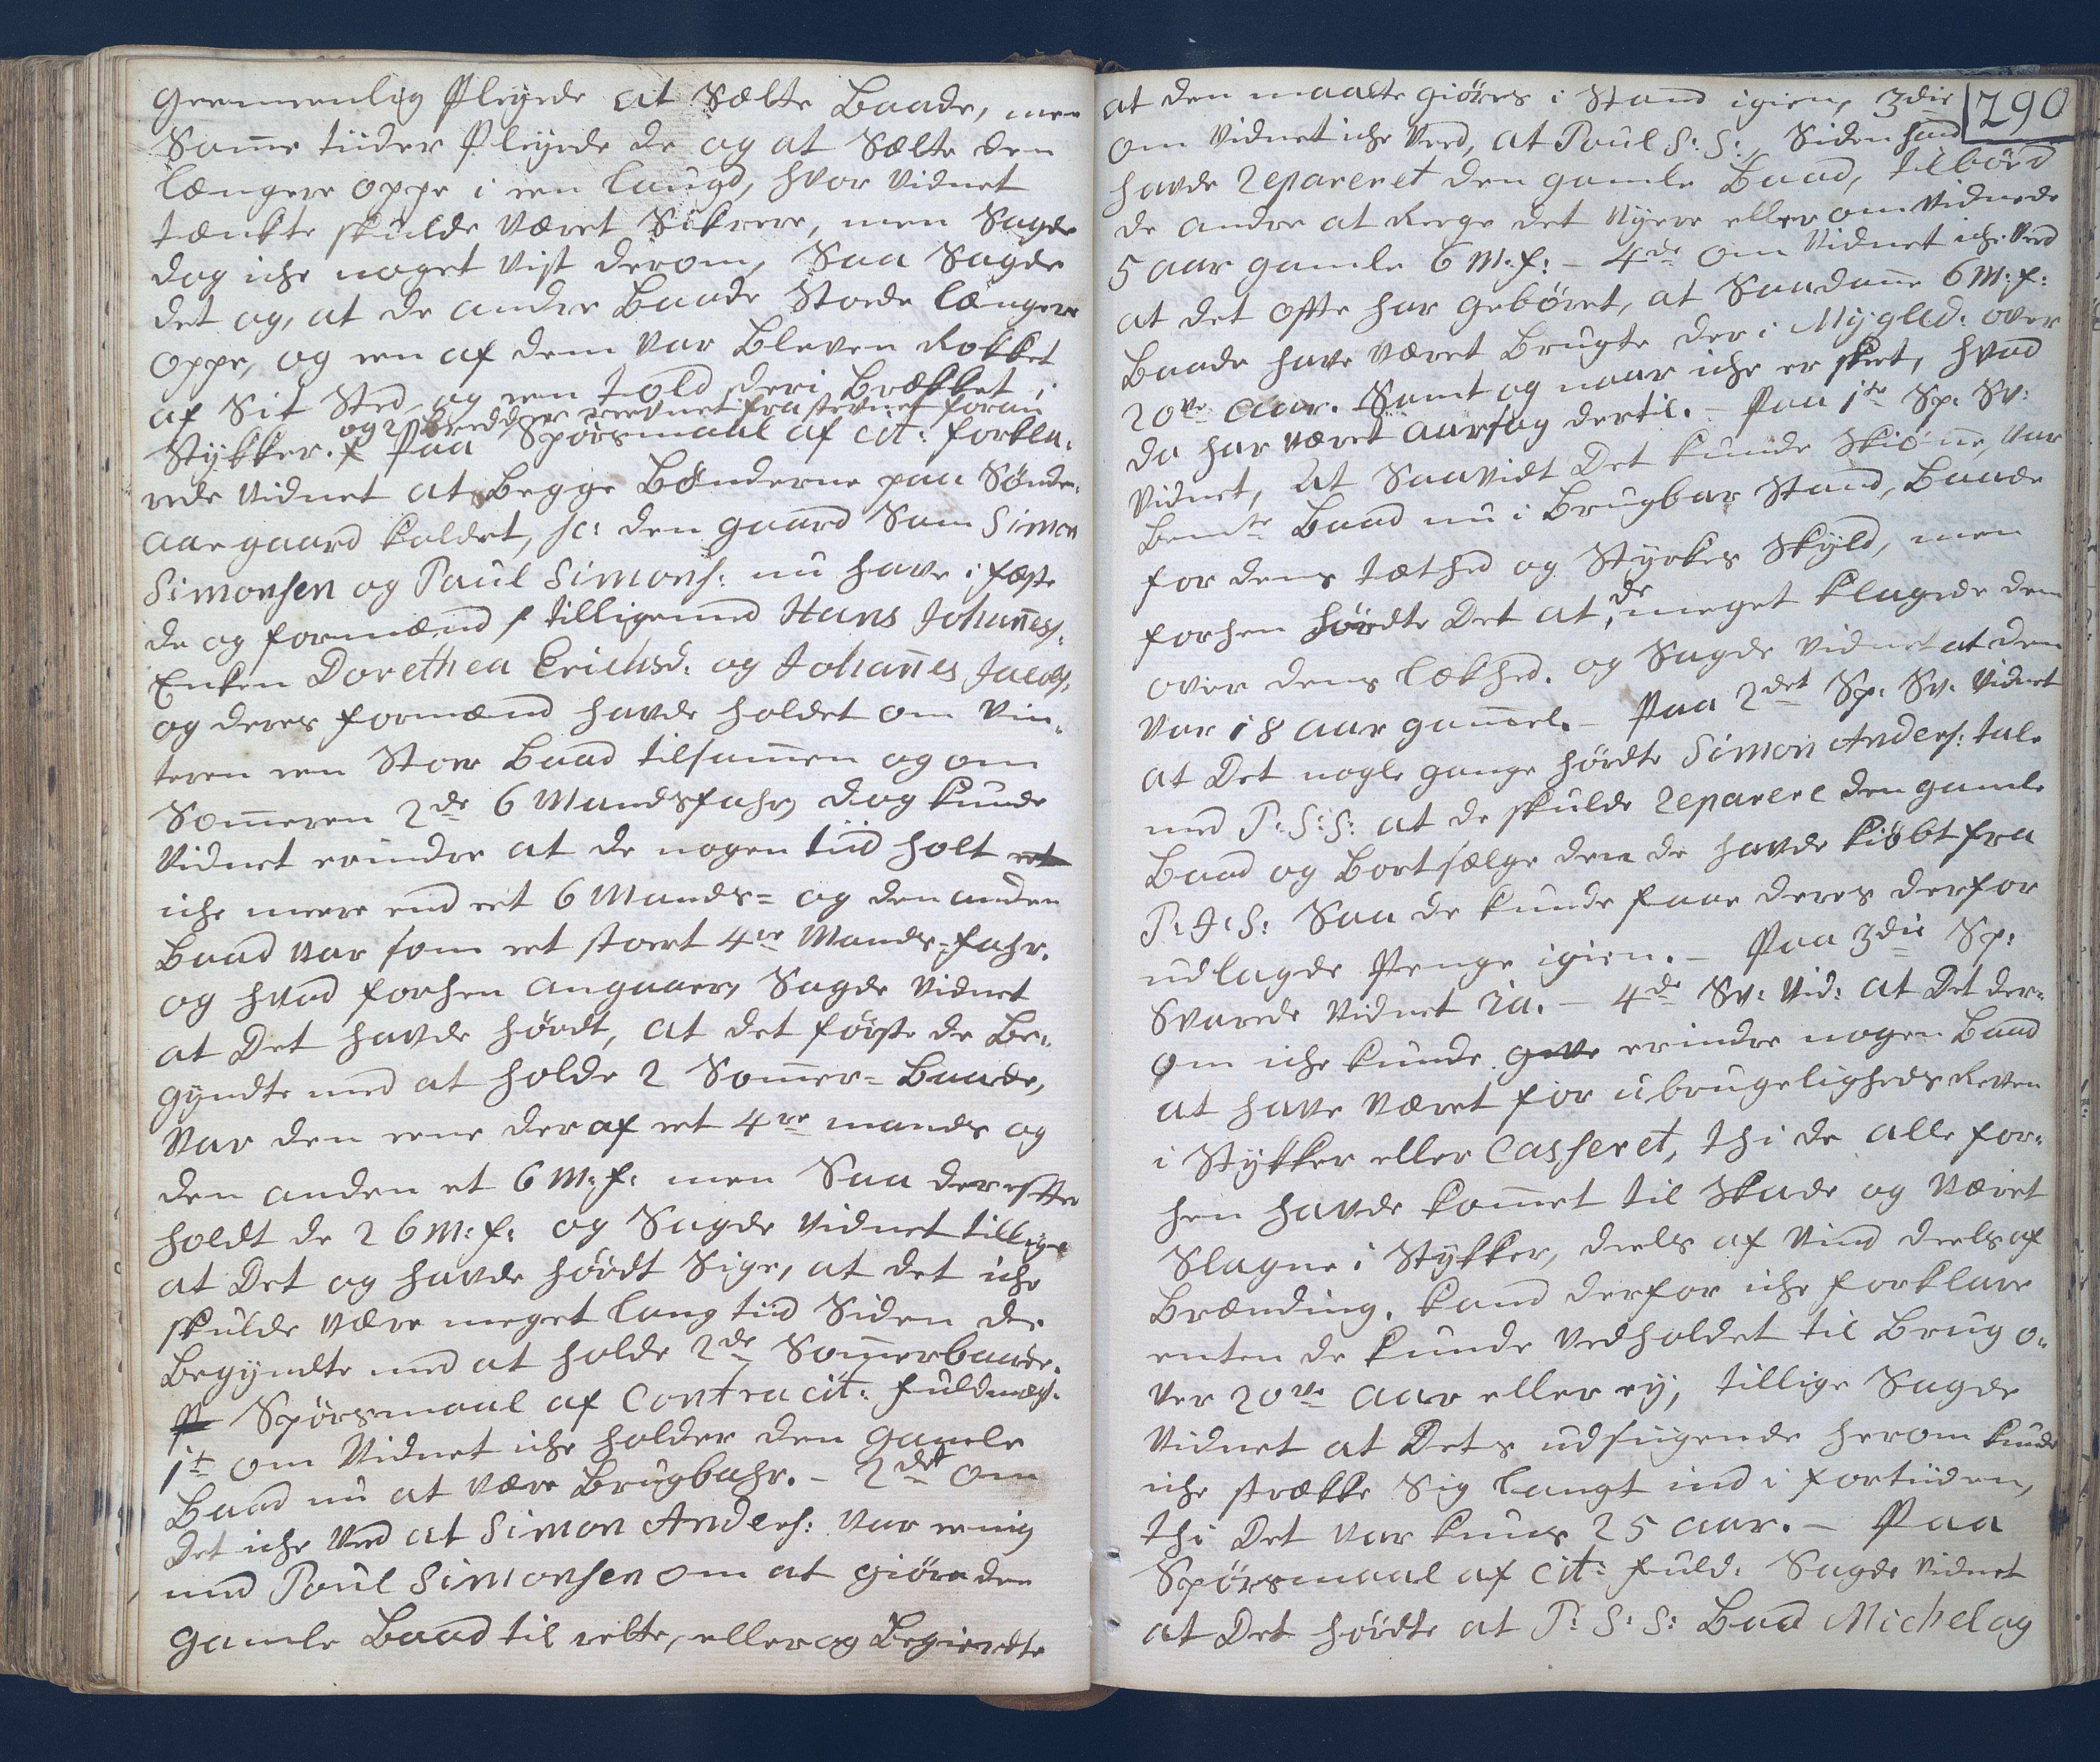 gemeenlig Pleyede at Sætte Baade, men
Som̄e tiider Pleyede de og at Sætte den
længere oppe i een laugd, hvor Vidnet
tænkte skulde været Sikrere, men Sagde
dog iche noget vist derom, Saa Sagde
det og, at de andre Baade Stode længere
oppe, og een af dem var Bleven Rokket
af Sit Sted og een told deri Brækket i
og 2 Bredder revnet fra stevnet foran
Stykker. Paa Spørsmaal af cit: forkla-
rede Vidnet at Begge Bønderne paa Sønder-
aaregaard kaldet, sc: den gaard Som Simon
Simonsen og Paul Simons: nu have i fæste
de og formænd / tilligemed Hans Johan̄ess:
Enken Dorethea Erichsd: og Johan̄es Jacobs:
og deres formænd havde holdet om Vin-
teren een Stor Baad tilsam̄en og om
Som̄eren 2de 6 Mandsfahr, dog kunde
Vidnet erindre at de nogen tiid holt et
iche meere end eet 6 Mands= og den anden
Baad var som eet stort 4re Mands-fahr.
og hvad forhen angaaer, Sagde Vidnet
at Det havde hørdt, at det første de Be-
gyndte med at holde 2 Som̄er= Baade,
var den eene deraf eet 4re mands og
den anden et 6 M: f: men Saa derefter
holdt de 2 6 M: f: og Sagde Vidnet tillige
at Det og havde hørdt Sige, at det iche
skulde være meget lang tiid Siden de
Begyndte med at holde 2de Som̄erbaade.
P Spørsmaal af Contracit: fuldmægt:
1te om Vidnet iche holder den gamle
Baad nu at være Brugbahr. – 2det om
Det iche Veed at Simon Anders: var eenig
med Poul Simonsen om at giøre den
gamle Baad til rette, eller og Begierdte
at den maatte giøres i Stand igien, 3die 290
om Vidnet iche Veed, at Poul S: S: Siden hand
havde Repareret den gamle Baad, tilbød
de andre at Kege det Nyere eller omvidnede
5 aar gamle 6 M: f: – 4de om Vidnet iche Veed
at det ofte har gebøret, at Saadan̄e 6 M: f:
Baade have været Brugte der i Mygled: over
20ve aar. Samt og naar iche er skeet, hvad
da har været aarsag dertil. – Paa 1te Sp. Sv:
Vidnet, at Saavidt Det kunde Skiøn̄e, var
Bemte Baad nu i Brugbar Stand, Baade
for dens tæthed og Styrkes Skyld, men
forhen hørdte Det at de meget klagede den
over dens lækhed. og Sagde Vidnet at den
var 18 aar gam̄el. – Paa 2det Sp. Sv. Vidnet
at Det nogle gange hørdte Simon Anders: tale
med P: S: S: at de skulde Reparere den gamle
Baad og Bortsælge den de havde kiøbt fra
P: J: S: Saa de kunde faae deres derfor
udlagde Penge igien. – Paa 3die Sp:
Svarede Vidnet Ja. – 4de Sv: Vid: at Det der-
om iche kunde give erindre nogen Baad
at have været for ubrugelighed Reven
i Stykker eller Casseret, thi de alle for-
hen havde kom̄et til Skade og været
Slagne i Stykker, deels af Vind deels af
Brænding. kand derfor iche forklare
enten de kunde vedholdet til Brug o-
ver 20ve aar eller ey, tillige Sagde
Vidnet at Dets udsigende herom kunde
iche strække Sig langt ind i fortiiden,
thi Det var kuns 25 aar. – Paa
Spørsmaal af Cit: fuld: Sagde Vidnet
at Det hørdte at P: S: S: Bad Michel og